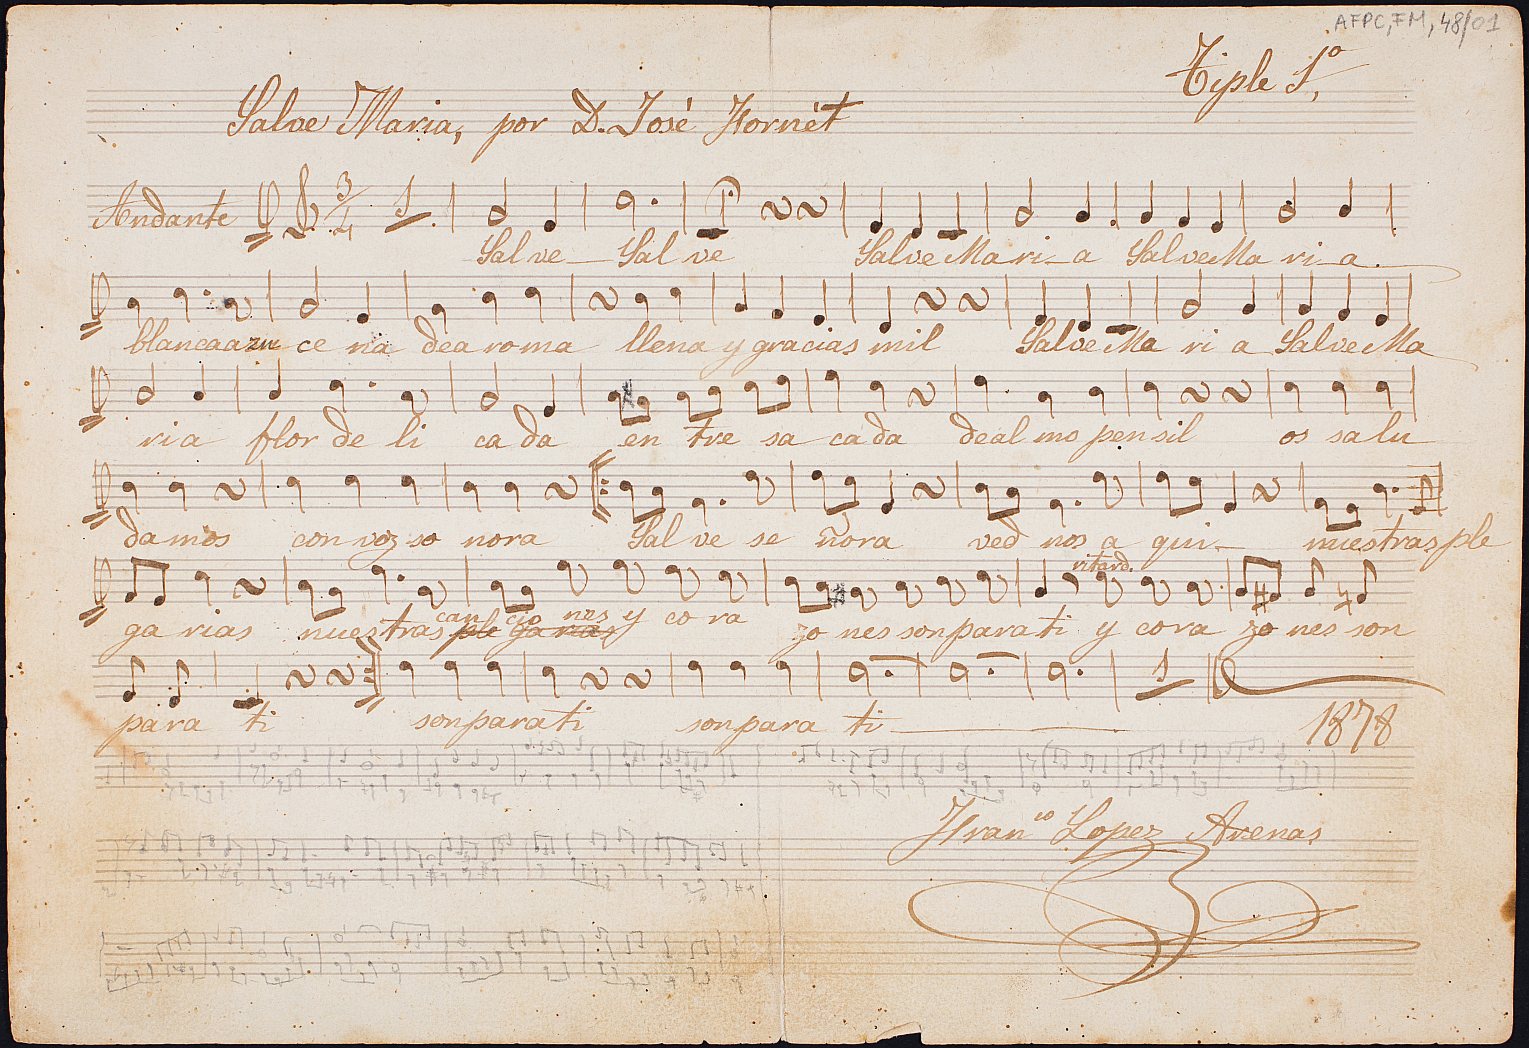 AFPC, FM, 48/01
Tiple 1º,
Salve Maria, por D. José Hornét
Andante 3/4 1
Salve Salve Salve Maria Salve Maria
blanca azucena de aroma llena y gracias mil Salve Maria Salve Ma
ria flor deli cada entre sacada de al mo pensil os salu
damos con voz sonora Salve señora ved nos a qui nuestras ple
ritard.
can cio nes
garias nuestras ple garias y cora zones son para ti y cora zones son
1
para ti son para ti son para ti
1878
Franco Lopez Arenas